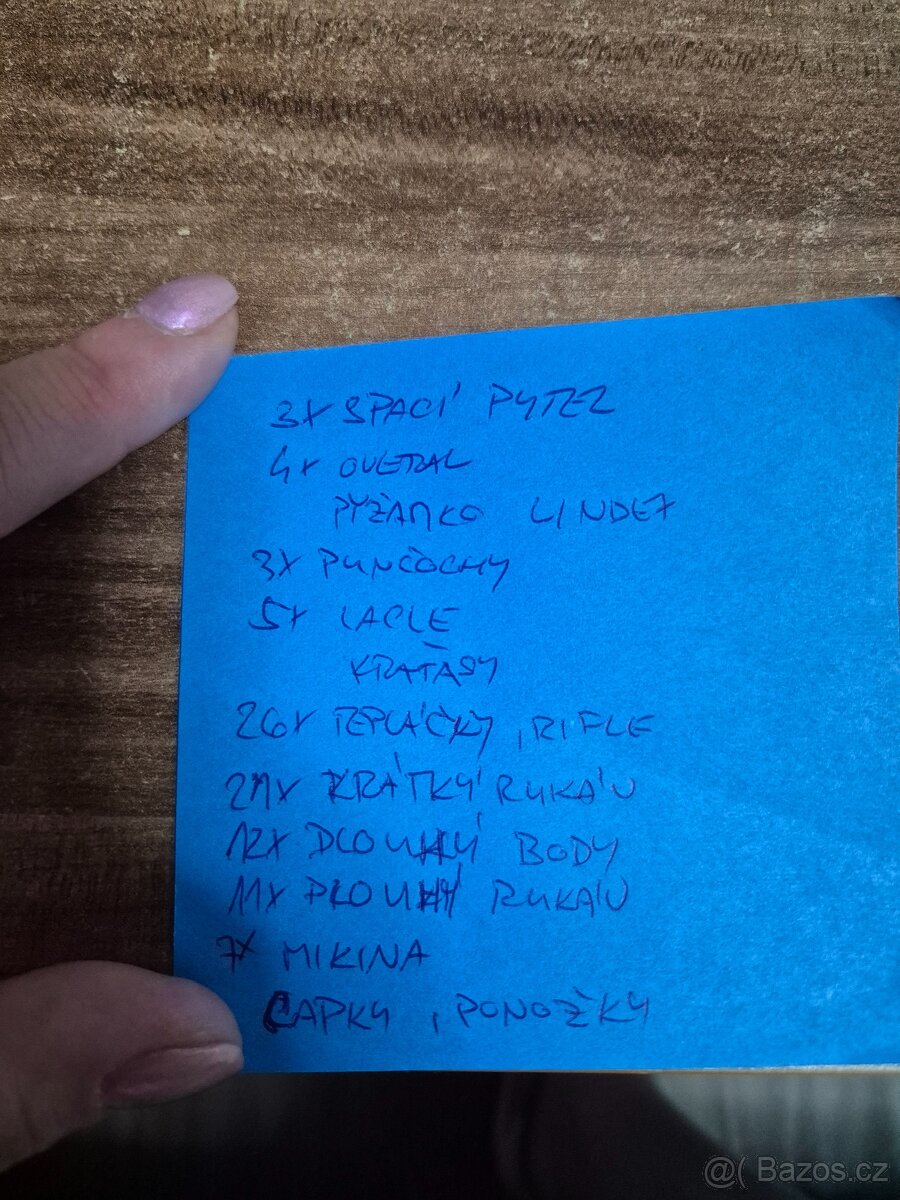 3x SPACÍ PYTEL
4x OVERAL
PYŽAMKO LINDEX
3x PUNČOCHY
5x LACLE
KRAŤASY
26x TEPLÁČKY, RIFLE
21x KRÁTKÝ RUKÁV
12x DLOUHÝ BODY
11x DLOUHÝ RUKÁV
7x MIKINA
ČAPKY, PONOŽKY
@( Bazos.cz